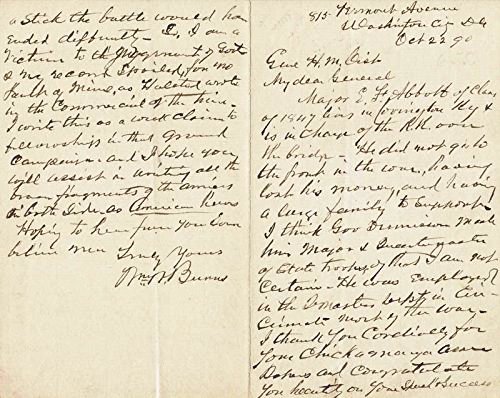 815 Vermont Avenue
Washington City DC
Oct 22 90
Genl H. M. Cist
My dear General
Major E. F. Abbott of Class
of 1847 lives in Covington Ky &
is in charge of the RR over
the bridge - He did not go to
the front in the war, having
lost his money, and having
a large family to support -
I think Gov Dennison made
him Major &
of State troops, of that I am not
certain - He was employed
in the Qr Masters Dept in Cin
cinnati most of the war -
I thank you Cordially for
your Chickamauga
and Congratulate
you heartily on your success
a stick the battle would have
ended differently - I am a
victim to the of
& my record spoiled, for no
fault of mine, as Halstead wrote
in the Commercial of the time -
I write this as a weak claim to
fellowship in that Grand
Campaign - and I hope you
will assist in uniting all the
fragments of the armies
on both sides as American heroes
Hoping to hear from you Soon
believe me
Truly Yours
Wm W. Burns